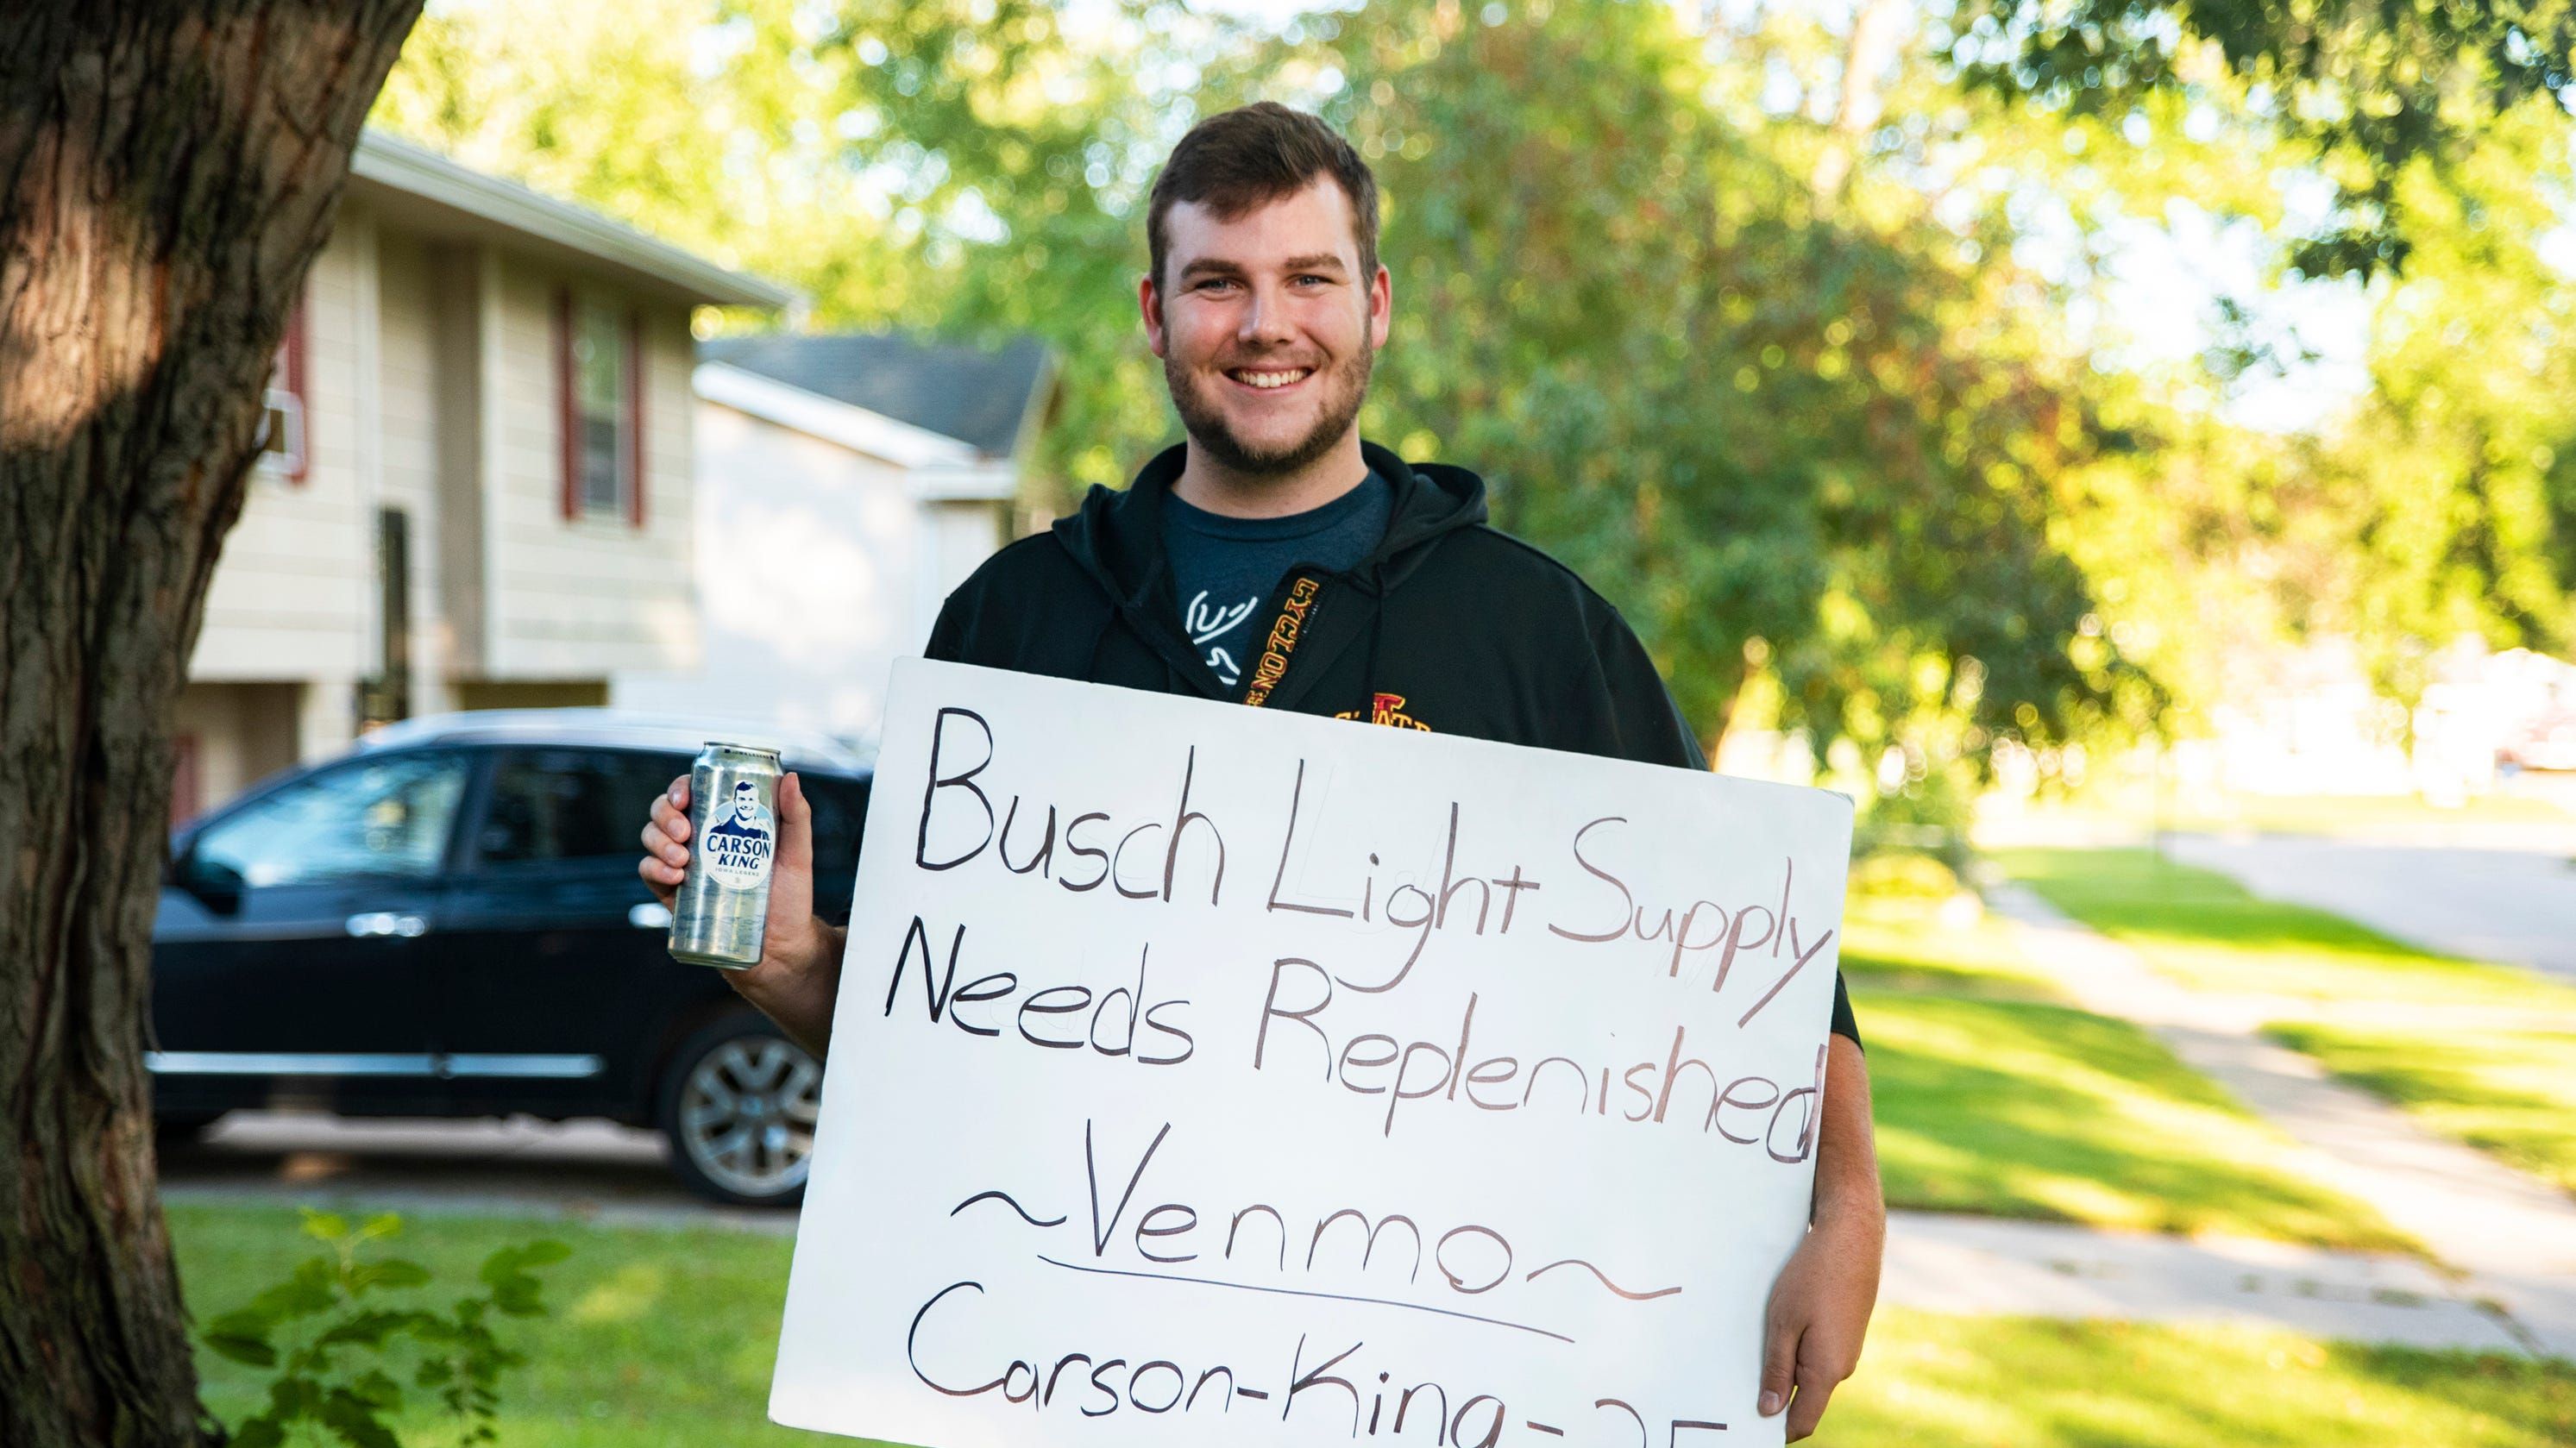 CYCLONES
STATE
CARSON
KING
IOWA LEGEND
Busch Light Supply
Needs Replenished
~Venmo~
Carson-King-25